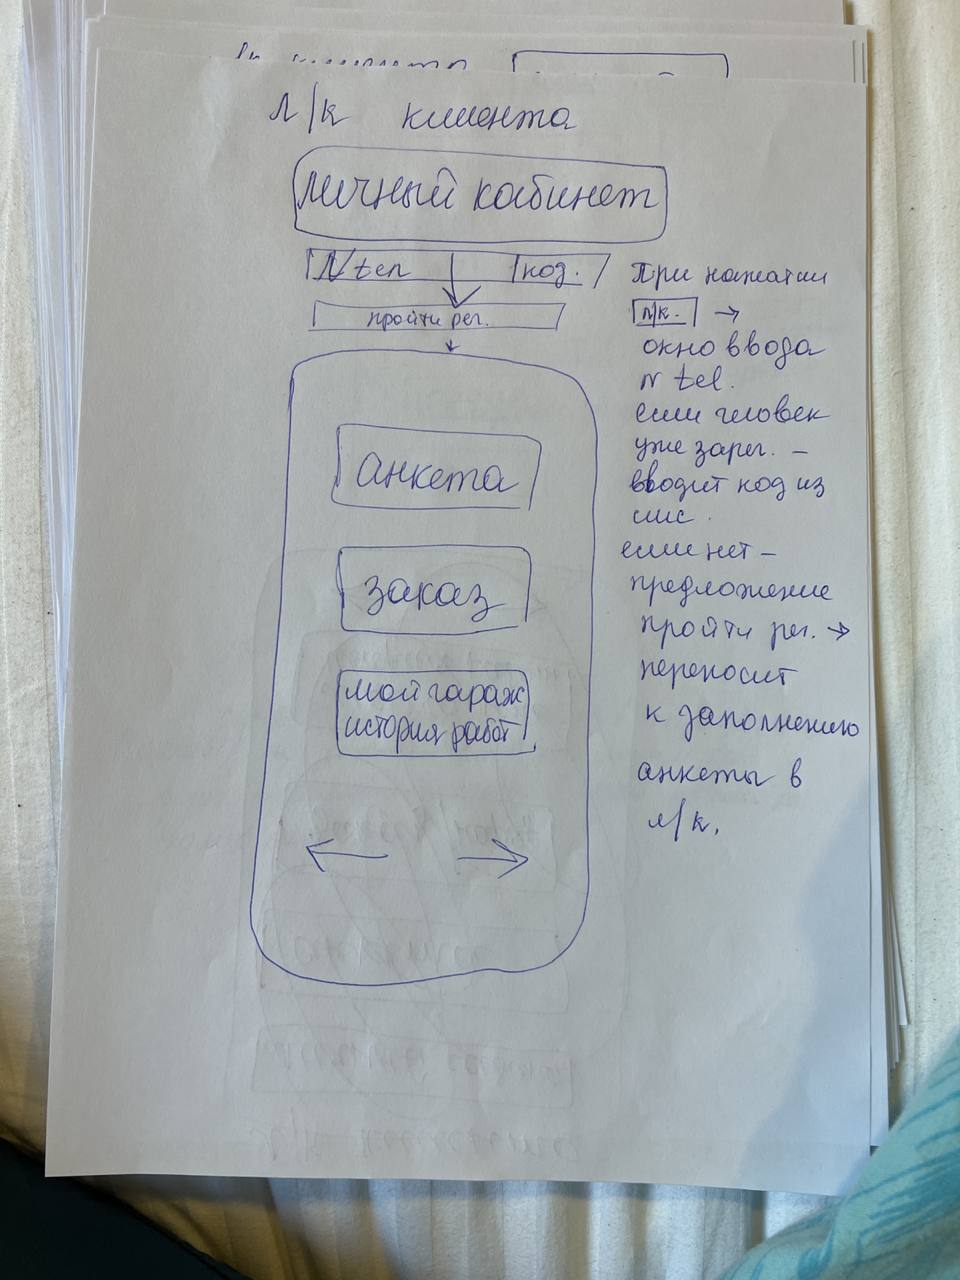 л/к клиента
личный кабинет
N tел
код.
пройти рег.
анкета
заказ
мой гараж
история работ
При нажатии
л/к. →
окно ввода
N tel.
если человек
уже зарег. –
вводит код из
смс.
если нет –
предложение
пройти рег. →
переносит
к заполнению
анкеты в
л/к.